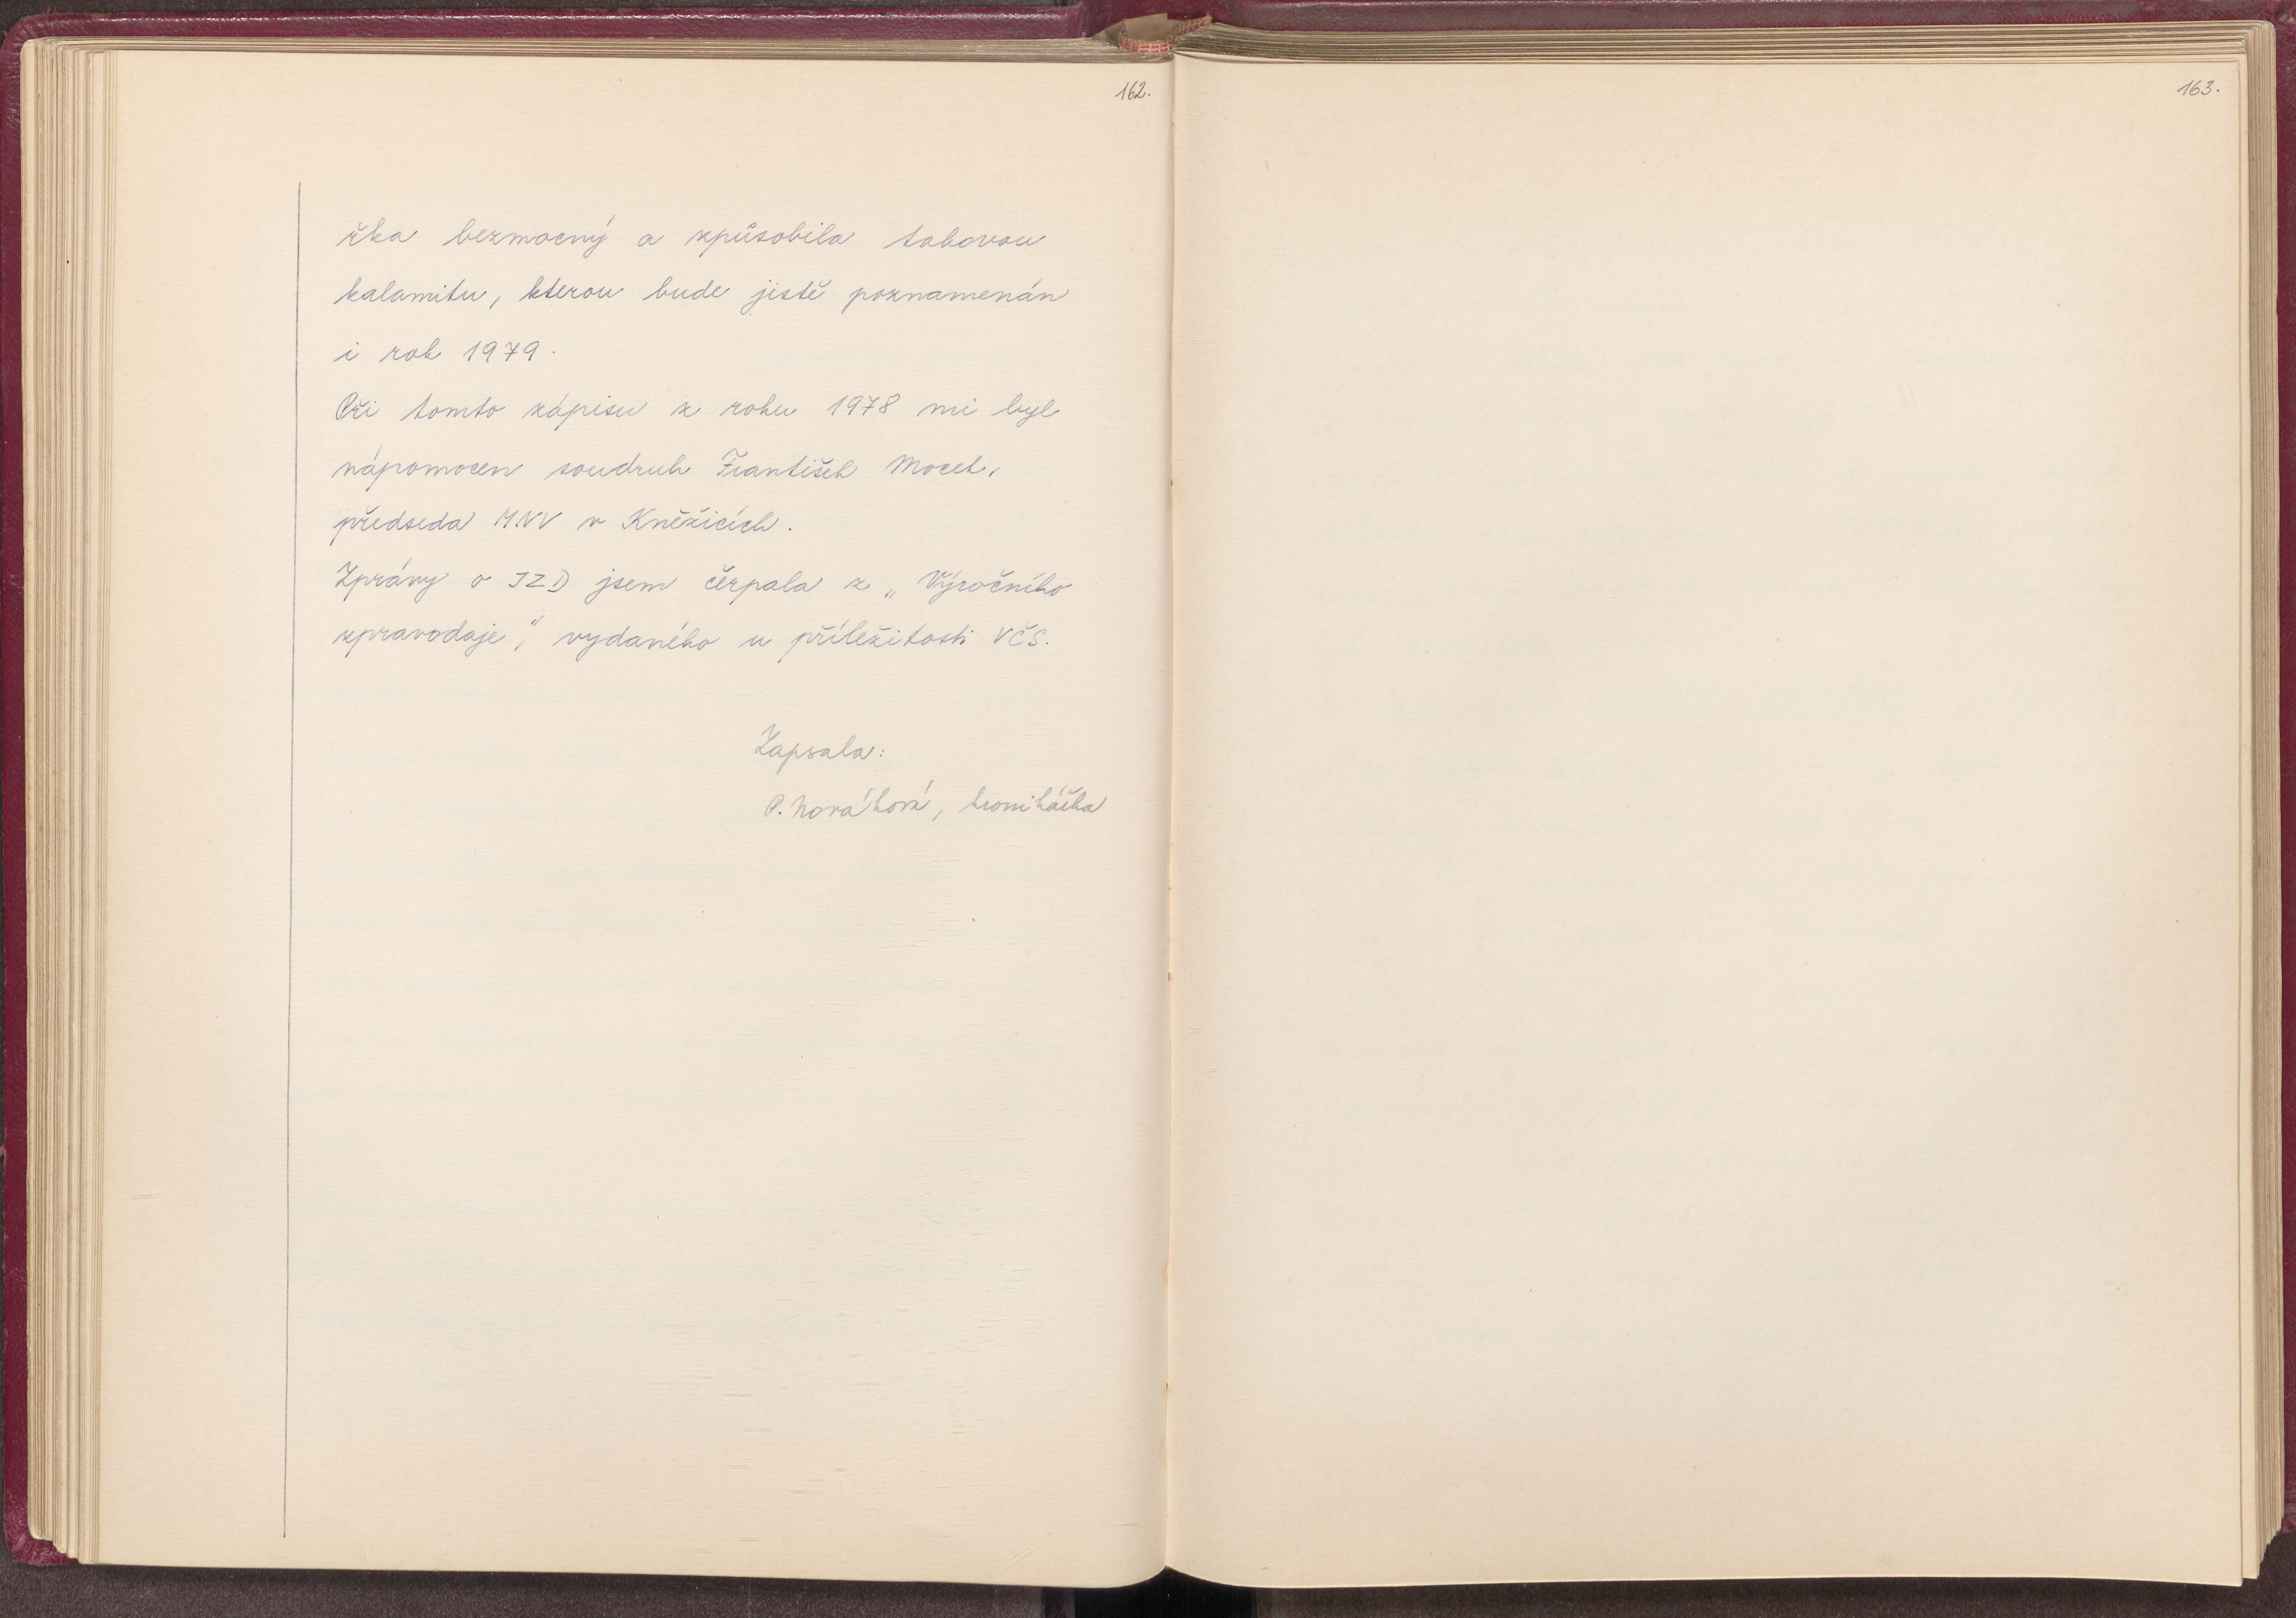 162.
řka bezmocný a způsobila takovou
kalamitu, kterou bude jistě poznamenán
i rok 1979.
Při tomto zápisu z roku 1978 mi byl
nápomocen soudruh František Mocek,
předseda MNV v Kněžicích.
Zprávy o JZD jsem čerpala z „Výročního
zpravodaje“, vydaného u příležitosti VČS.
Zapsala:
P. Nováková, kronikářka
163.